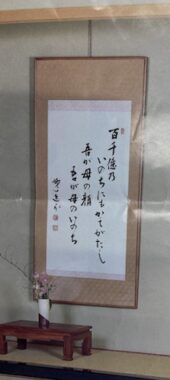 百千億乃
いのちにもかへがたし
吾が母の顔
吾が母のいのち